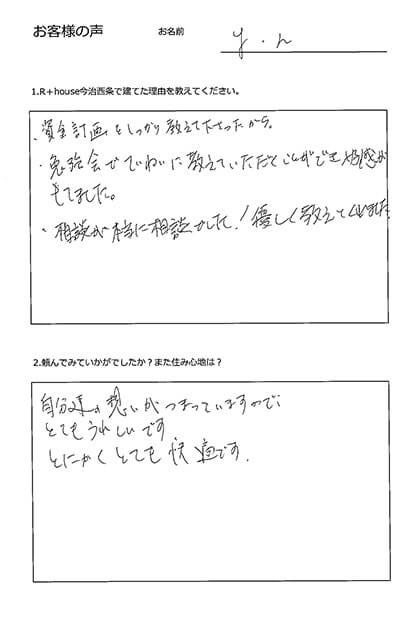 お客様の声 お名前 y.n
1.R+house今治西条で建てた理由を教えてください。
・資金計画をしっかり教えて下さったから。
・勉強会でていねいに教えていただくことができ好感が
もてました。
・相談が本当に相談でした!優しく教えてくれました
2.頼んでみていかがでしたか?また住み心地は?
自分達の想いがつまっていますので、
とてもうれしいです
とにかくとても快適です.